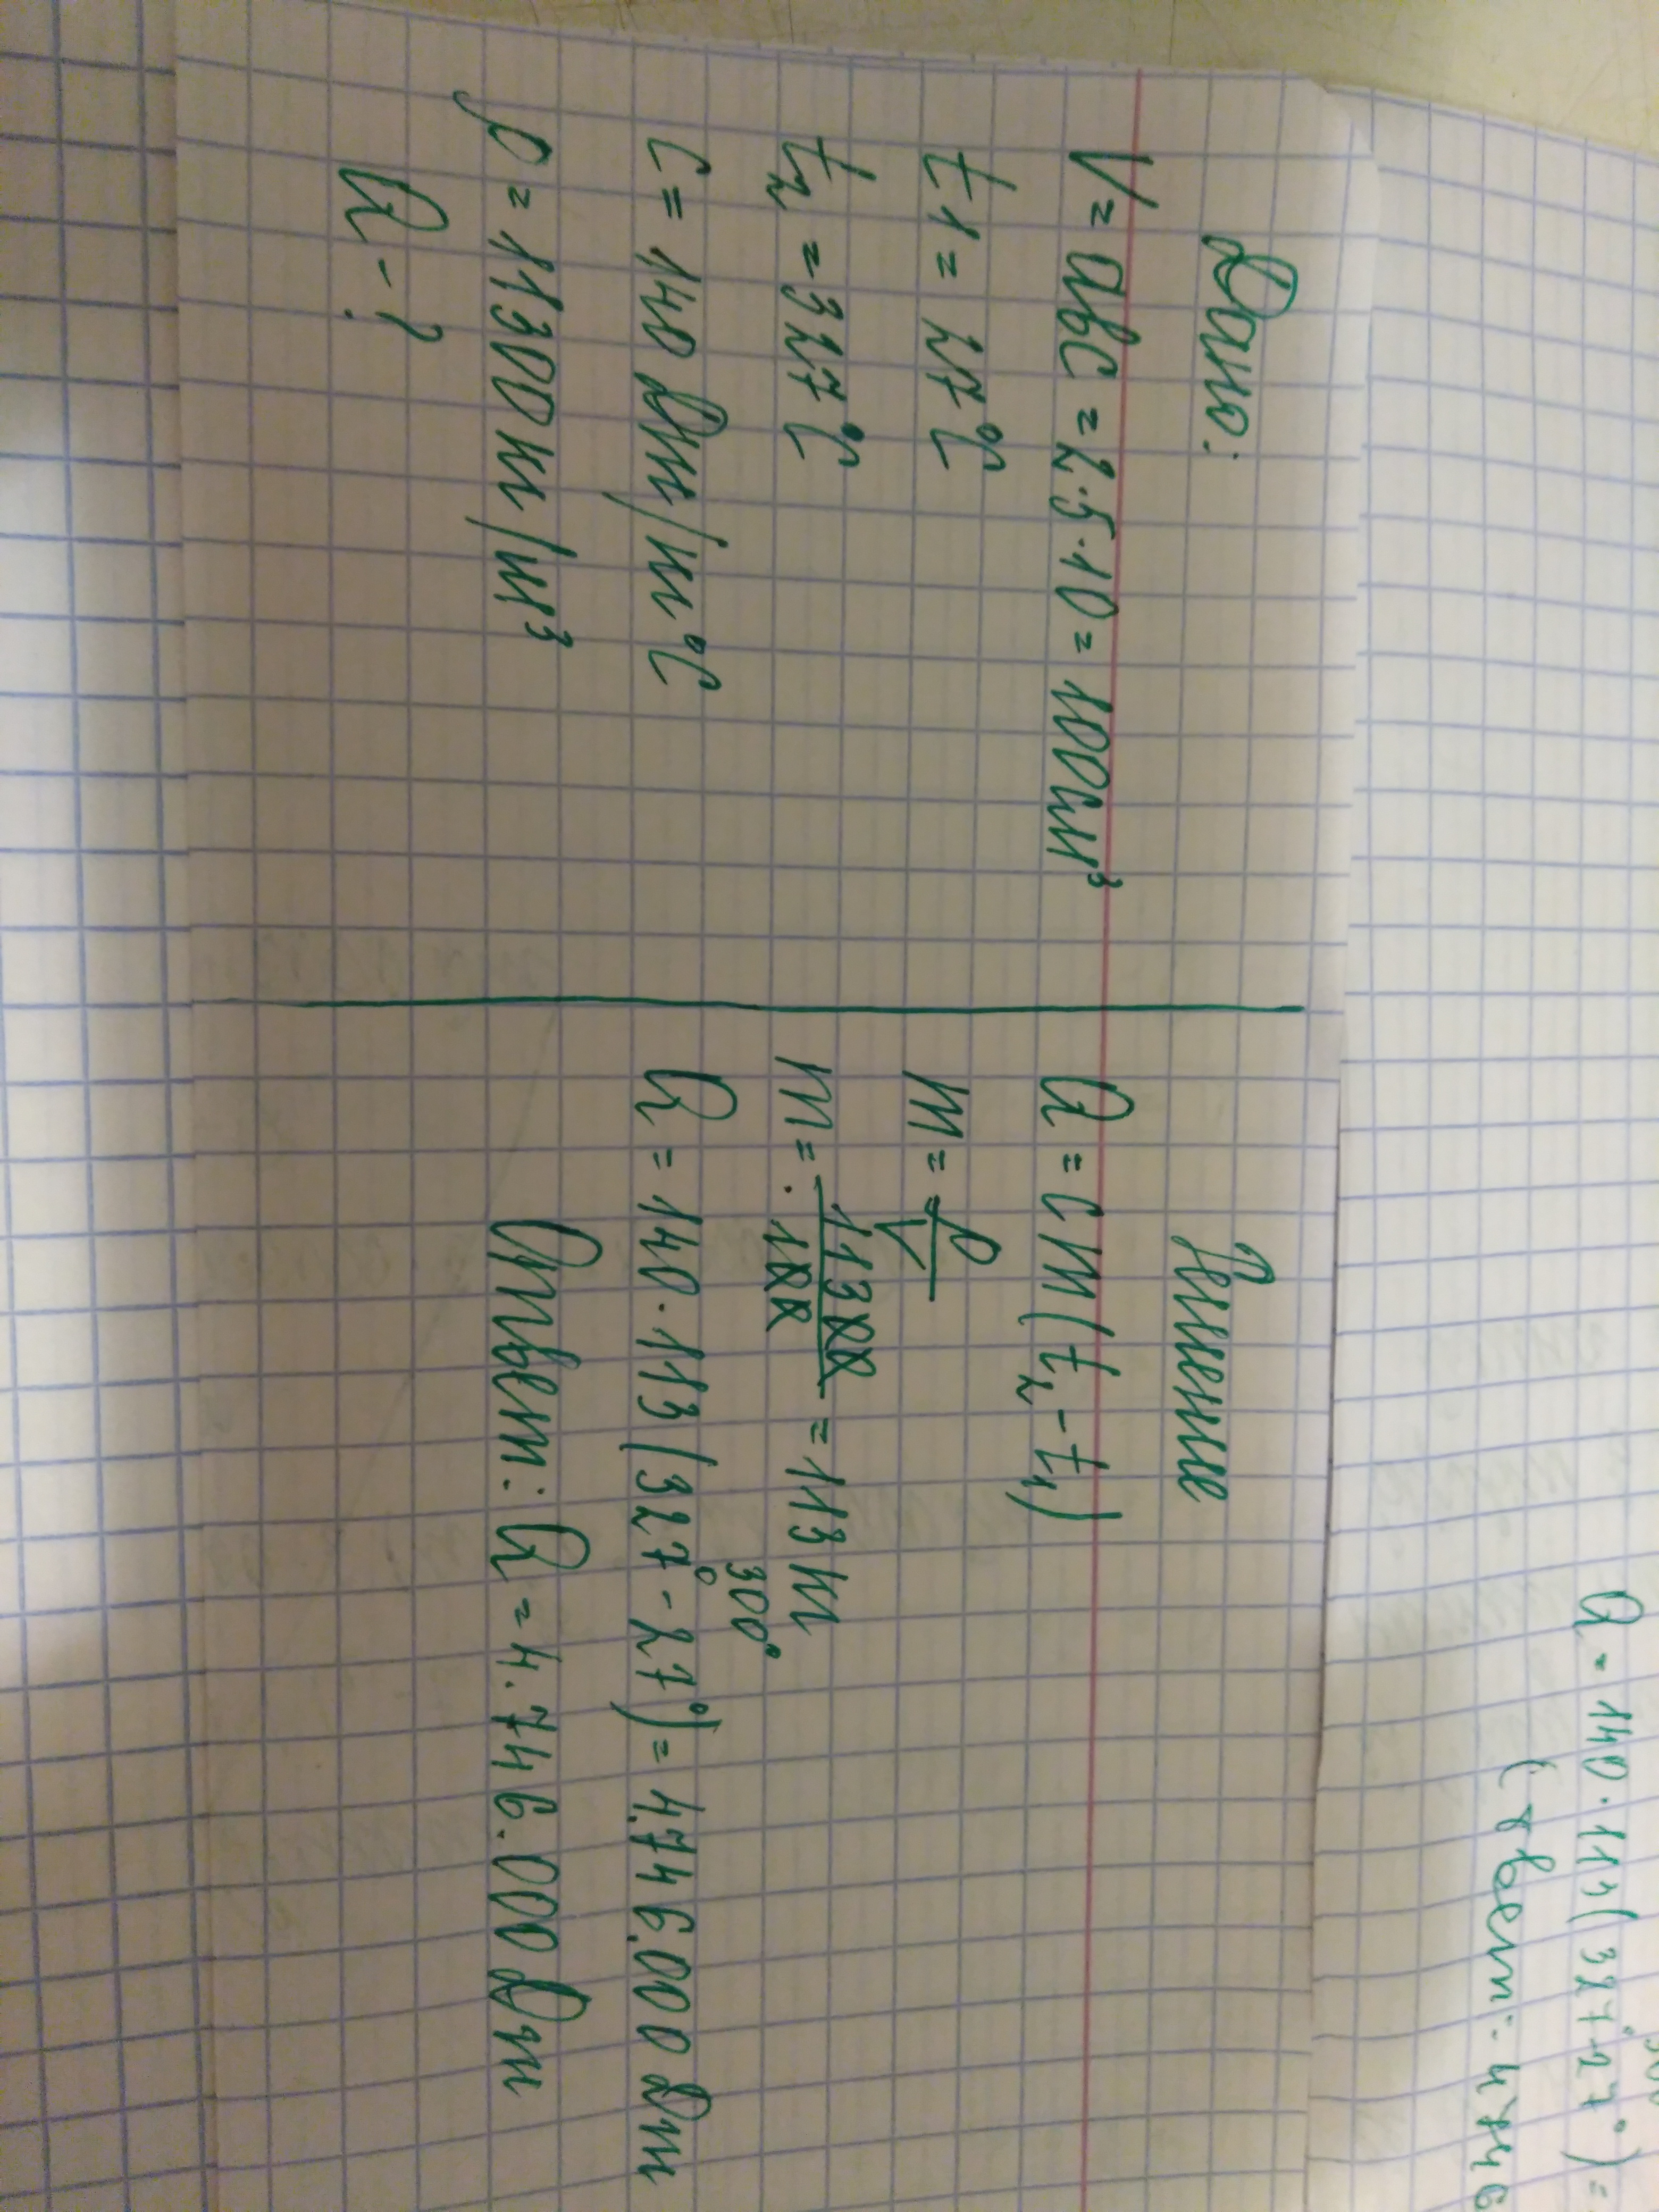 Дано:
V = abc = 2·5·10 = 100см³
t1 = 27°C
t₂ = 327°C
c = 140 Дж/кг°C
ρ = 11300 кг/м³
Q - ?
Решение
Q = cm(t₂ - t₁)
m = ρ/V
m = 11300/100 = 113 кг
300°
Q = 140·113(327° - 27°) = 4.746.000 Дж
Ответ: Q = 4.746.000 Дж
300
Q = 140·113(327+27°) =
Ответ: 4746